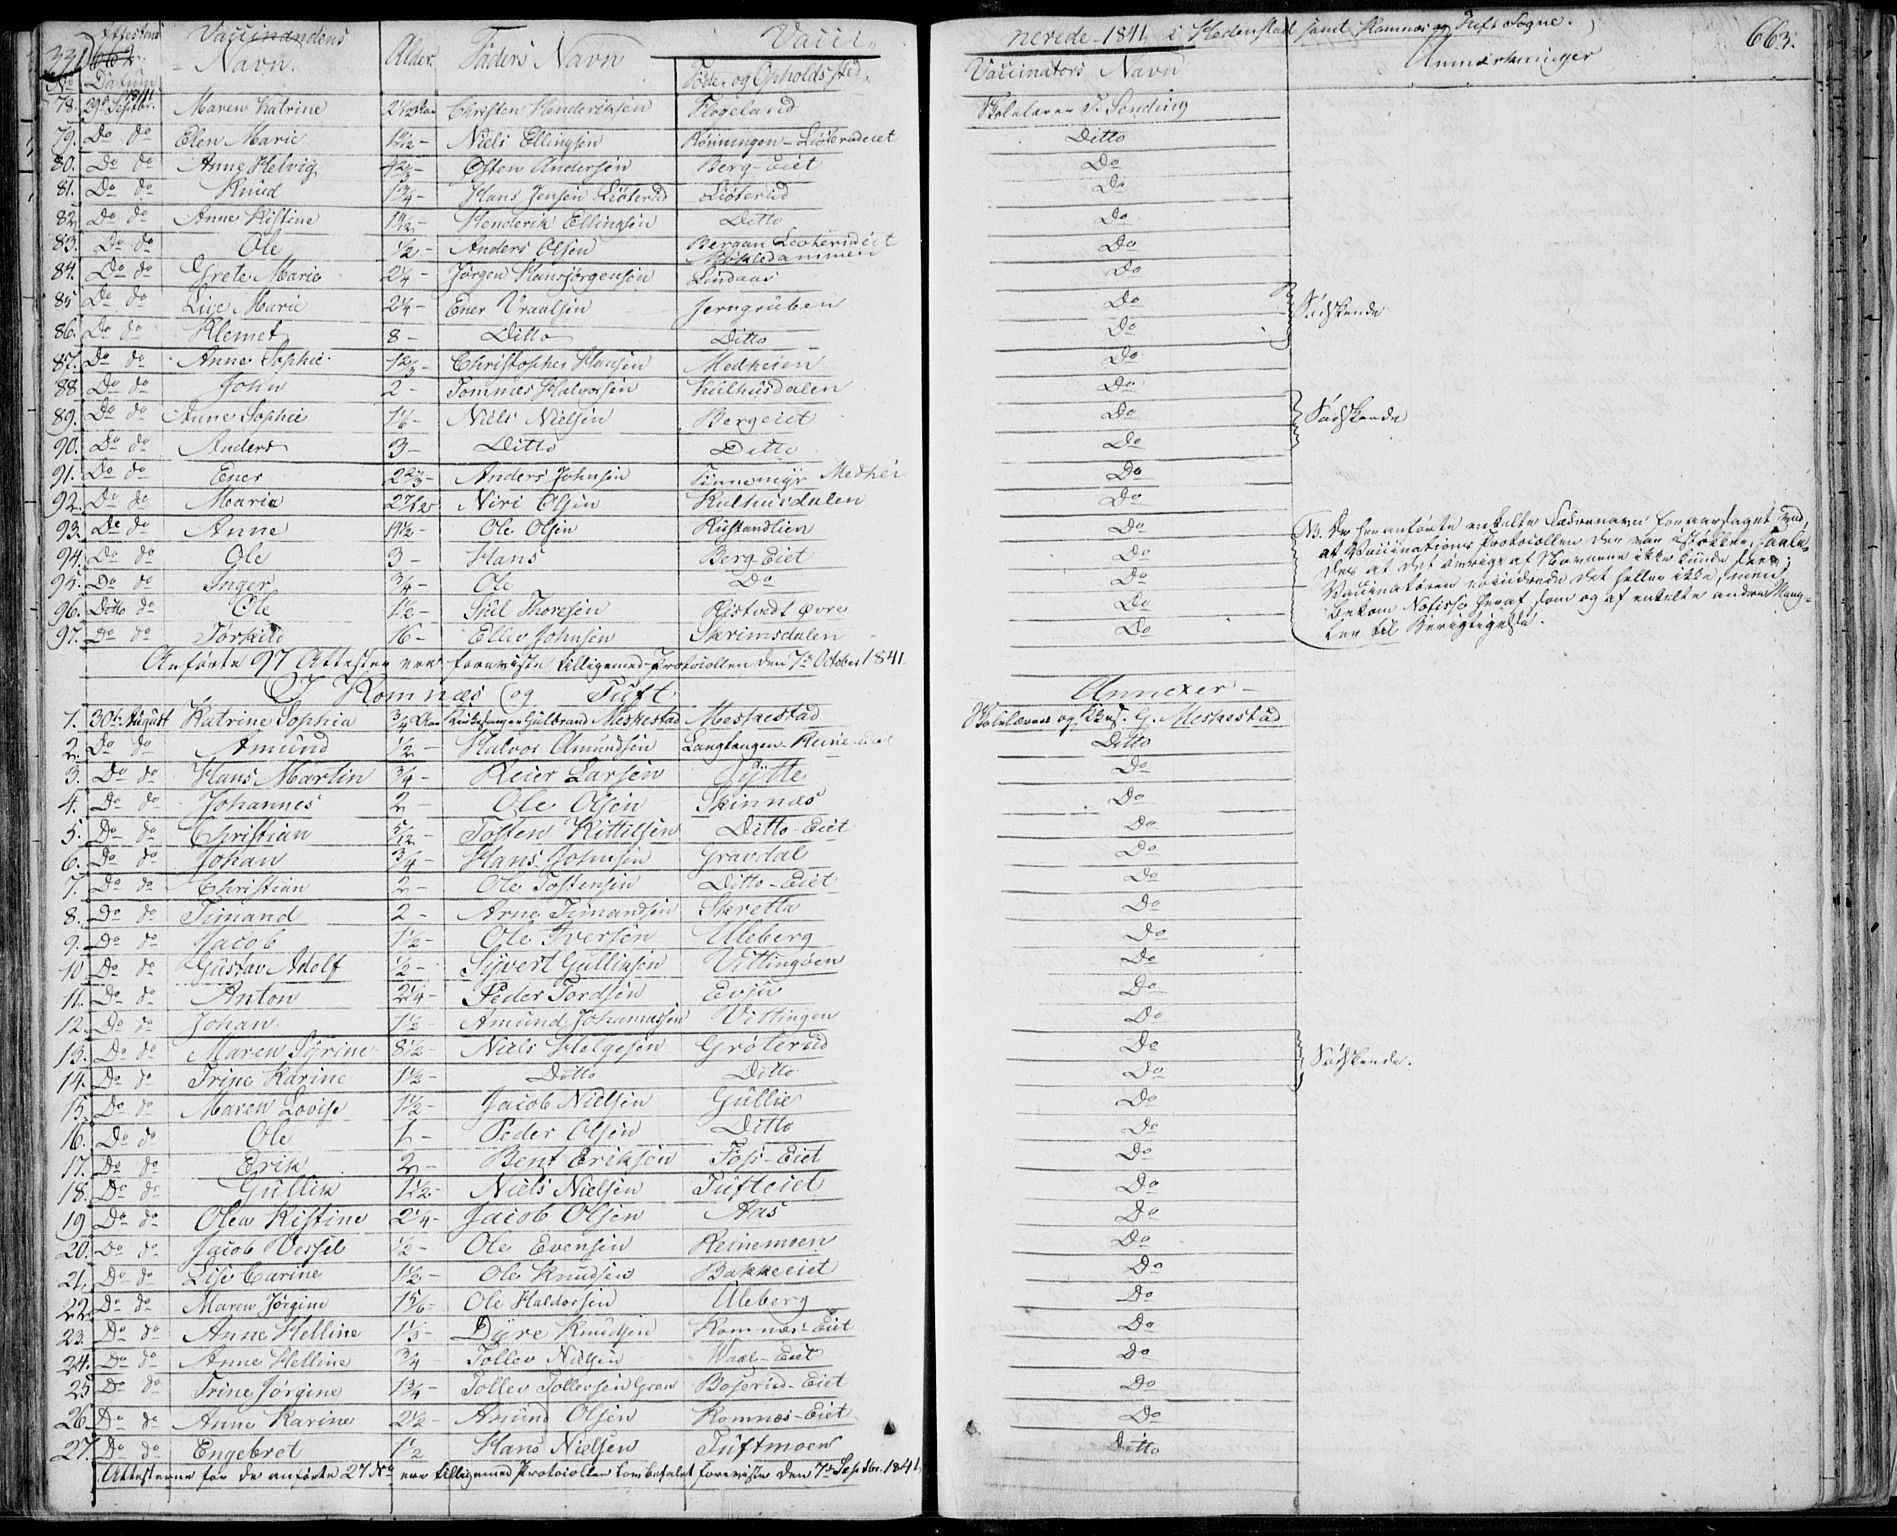 331 662. Attestens Vaccinandens Alder. Faders Navn Vacci-
nerede 1841 i Hedenstad samt Komnes og Tuft Sogne. 663.
No Datum Navn. Føde- og Opholds Sted. Vaccinators Navn Anmærkninger
78. 29d Septbr. 1841 Maren Katrine 2½ Aar Christen Henderiksen Flogeland Skolelærer T. Sending
79. Do do Elen Marie 1½ - Niels Ellingsen Rønningen - Liøterudeiet Ditto
80. Do do Anne Helvig 1⅔ - Østen Andersen Berg-Eiet Do
81. Do do Knud 1¾ - Hans Jensen Liøterud Liøterud Do
82. Do do Anne Kistine 1½ - Henderik Ellingsen Ditto Do
83. Do do Ole ½ - Anders Olsen Bergan Leoterudeiet Do
84. Do do Grete Maria 2¼ - Jørgen Hansjørgensen Lindaas Do
85 Do do Lise Marie 2¼ - Ener Vraalsen Jerngruben Do Sødskende
86. Do do Klemet 8 - Ditto Ditto Do
87. Do do Anne Sophie 1⅔ - Christopher Hansen Medheien Do
88 Do do John 2 - Tomnes Halvorsen Kulhusdalen Do
89. Do do Anne Sophie 1⅙ - Niels Nielsen Bergeiet Do Sødskende
90. Do do Anders 3 - Ditto Ditto Do
91. Do do Ener 2⅔ - Anders Johnsen Tinnemyr Medhei Do
92. Do do Maria 2 7/12 Niri Olsen Kulhusdalen Do
93. Do do Anne 1½ - Ole Olsen Kustandlien Do
94. Do do Ole 3 - Hans Berg-Eiet Do
95. Do do Inger ¾ - Ole Do Do
96. Ditto do Ole ½ - Siul Thoresen Ristvedt Øvre Do
97. Do do Torkild 16 - Ellev Johnsen Skrimsdalen - Do
NB. De her anførte enkelte Fædrenavne foraarsaget ved,
at Vaccinations Protocollen der var støkken, saale-
des at det øvrige af Navnene ikke kunde sees;
Vaccinatøren erindrede det heller ikke, men
bekom Notisse heraf som og af enkelte andre Mang-
ler til Berigtigelse.
Anførte 97 Attester ere foreviste tilligemed Protocollen den 7de October 1841
I Komnæs og Tuft Annexer -
1. 30te August Katrine Sophia ¾ Aar Kirkesanger Gulbrand Meskestad Meskestad Skolelærer og Kkes. G. Meskestad
2. Do do Amund ½ - Halvor Amundsen Langtangen - Reine-Eiet Ditto
3. Do do Hans Martin ¾ - Reier Larsen Sytte Do
4. Do do Johannes 2 - Ole Olsen Skinnæs Do
5. Do do Christian 5/12 - Tosten Kittilsen Ditto - Eiet Do
6. Do do Johan ¾ - Hans Johnsen Gravdal Do
7. Do do Christian 2 - Ole Tostensen Ditto - Eiet Do
8. Do do Timand 2 - Arne Timandsen Skretta Do
9. Do do Jacob 1½ - Ole Iversen Uleberg Do
10 Do do Gustav Adolf ½ - Syvert Gulliksen Vittingoen Do
11. Do do Anton 2¼ - Peder Tordsen Evju Do
12. Do do Johan 1½ - Amund Johannessen Vittingen Do
13. Do do Maren Syrine 8½ - Niels Helgesen Grøterud Do Sødskende.
14. Do do Trine Karine 1½ - Ditto Ditto Do
15. Do do Maren Lovise 1½ - Jacob Nielsen Gullie Do
16. Do do Ole 1 - Peder Olsen Ditto Do
17. Do do Erik 2 - Bent Eriksen Foss-Eiet Do
18. Do do Gullik 1½ - Niels Nielsen Tufteiet Do
19 Do do Olea Kistine 2¼ - Jacob Olsen Aas Do
20. Do do Jacob Vessel ½ - Ole Evensen Reinemoen Do
21. Do do Lise Carine 1½ - Ole Knudsen Bakkeeiet Do
22. Do do Maren Jørgine 1⅚ - Ole Haldorsen Uleberg Do
23. Do do Anne Helline 1⅓ - Dyre Knudsen Komnæs-Eiet Do
24. Do do Anne Helline ¾ - Tollev Nielsen Waal-Eiet Do
25 Do do Trine Jørgine 1¾ - Tollev Tollevsen Gran Boserud-Eiet Do
26. Do do Anne Karine 2½ - Amund Olsen Komnæs-Eiet Do
27. Do do Engebret 1½ Hans Nielsen Tuftmoen Ditto
Attesterne for de anførte 27 No ere tilligemed Protocollen som befalet foreviste den 7de Septbr. 1841.